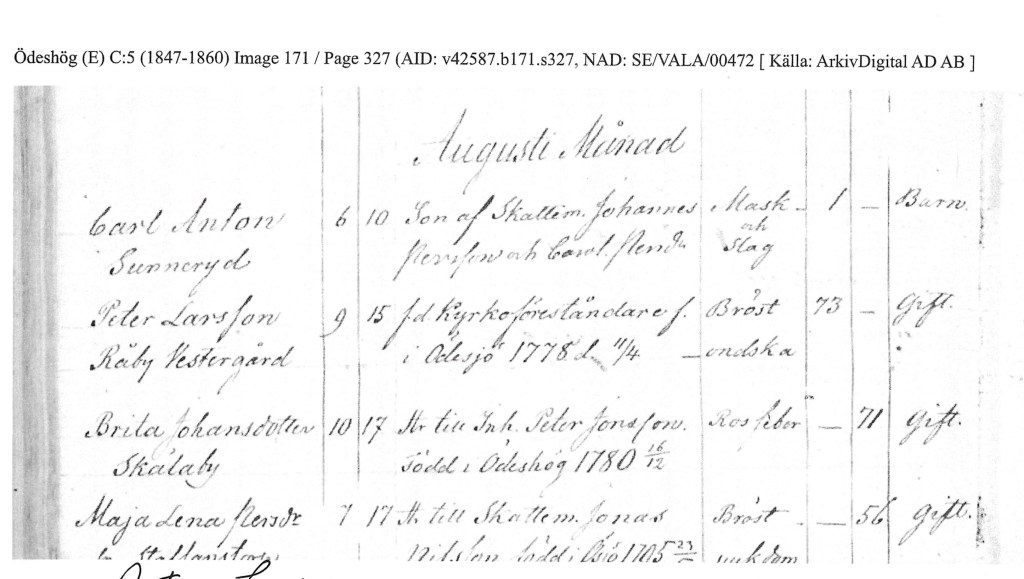 Ödeshög (E) C:5 (1847-1860) Image 171 / Page 327 (AID: v42587.b171.s327, NAD: SE/VALA/00472 [ Källa: ArkivDigital AD AB ]
Augusti Månad
Carl Anton 6 10 Son af Skattem. Johannes Mask- 1 — Barn.
och
Sunneryd Persson och Carol. Persdr Slag
Peter Larsson 9 15 f.d. Kyrkoföreståndare f. Bröst 73 — Gift.
Råby Vestergård i Ödesjö 1778 d. 11/4 —ondska
Brita Johansdotter 10 17 Hr till Inh. Peter Jonsson. Rosfeber — 71 Gift.
Skålaby Född i Ödeshög 1780 16/12
Maja Lena Persdr 7 17 Hr till Skattem. Jonas Bröst — 56 Gift.
Nilsson född i 1705 23 sjukdom